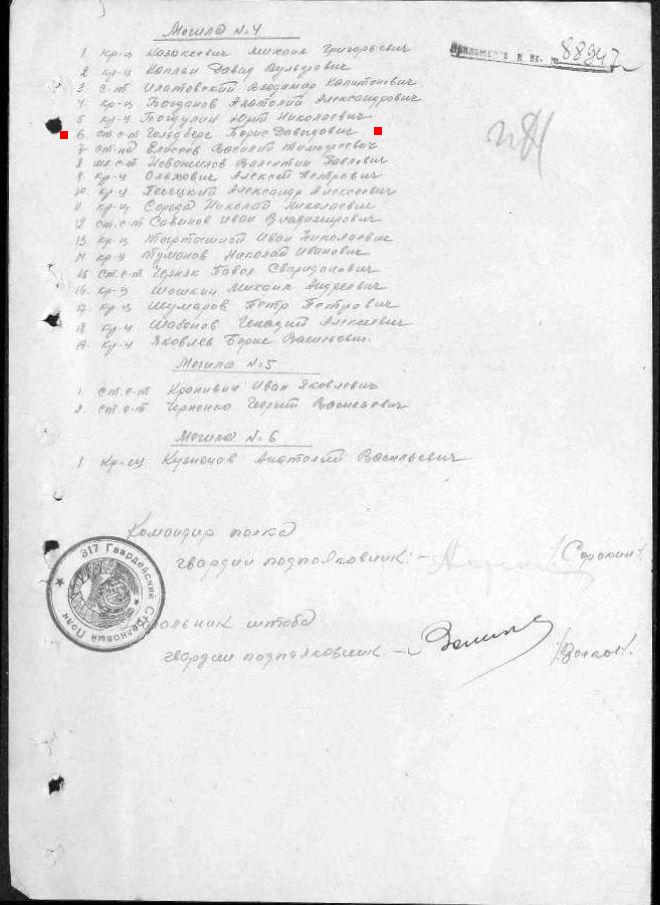 Могила № 4
88947
1. кр-ц Казакевич Михаил Григорьевич
2 кр-ц Каплан Давид Вульфович
3. с-т Илатовский Владимир Капитонович
4. кр-ц Богданов Анатолий Александрович
5. кр-ц Погудин Юрий Николаевич
6. ст.с-т Гольдберг Борис Давыдович
7 Елисеев Василий Тимофеевич
8 мл.с-т Новожилов Валентин Павлович
9. кр-ц Ольхович Алексей Петрович
10. кр-ц Александр Алексеевич
11. кр-ц Середа Николай Николаевич
12 ст.с-т Савинов Иван Владимирович
13. кр-ц Иван Николаевич
14. кр-ц Туманов Николай Иванович
15 ст.с-т Черняк Павел Свиридонович
16. кр-ц Шашкин Михаил Андреевич
17. кр-ц Шумаров Петр Петрович
18 кр-ц Шабанов Генадий Алексеевич
19. кр-ц Яковлев Борис Васильевич.
Могила № 5
1. ст.с-т Крапивин Иван Яковлевич
2. ст.с-т Черненко Георгий Васильевич
Могила № 6
1 кр-ец Кузнецов Анатолий Васильевич
Командир полка
гвардии подполковник: – /Сорокин/.
317 Гвардейский Стрелковый Полк
Начальник штаба
гвардии подполковник – /Волков/.